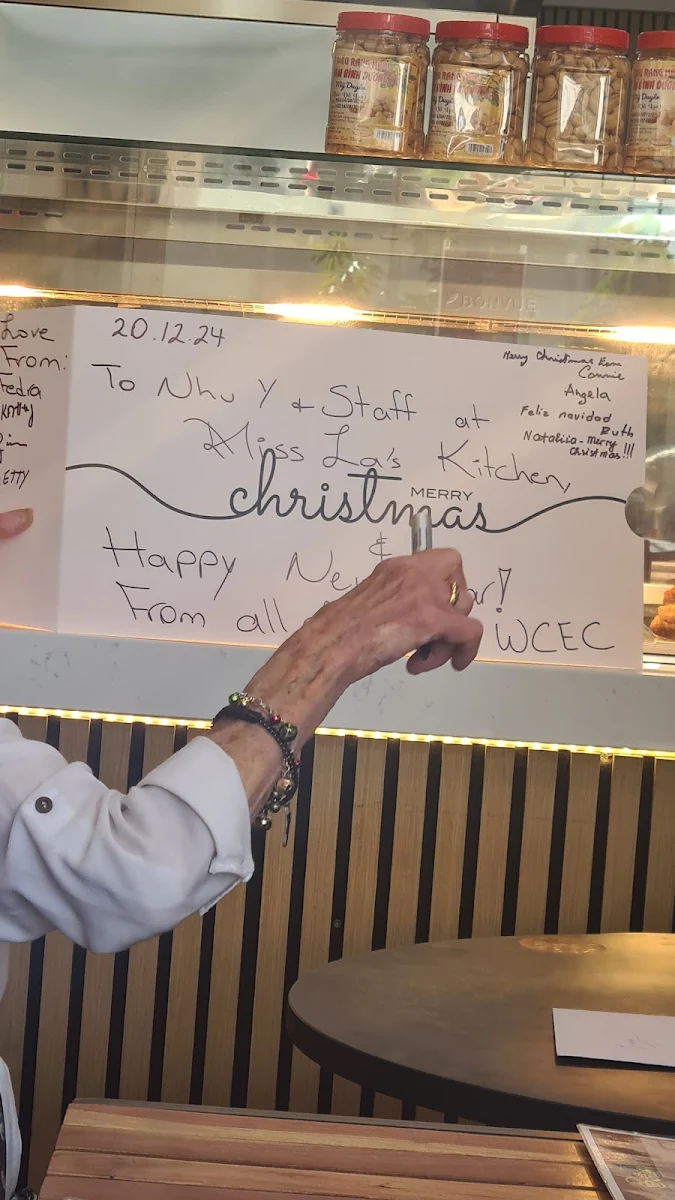 BONVUE
Love
From:
20.12.24
To Nhu Y & Staff at
Miss La's Kitchen,
MERRY
christmas
&
Happy
From all
WCEC
Merry Christmas from
Connie
Angela
Feliz navidad
Ruth
Nataliia - Merry
Christmas!!!